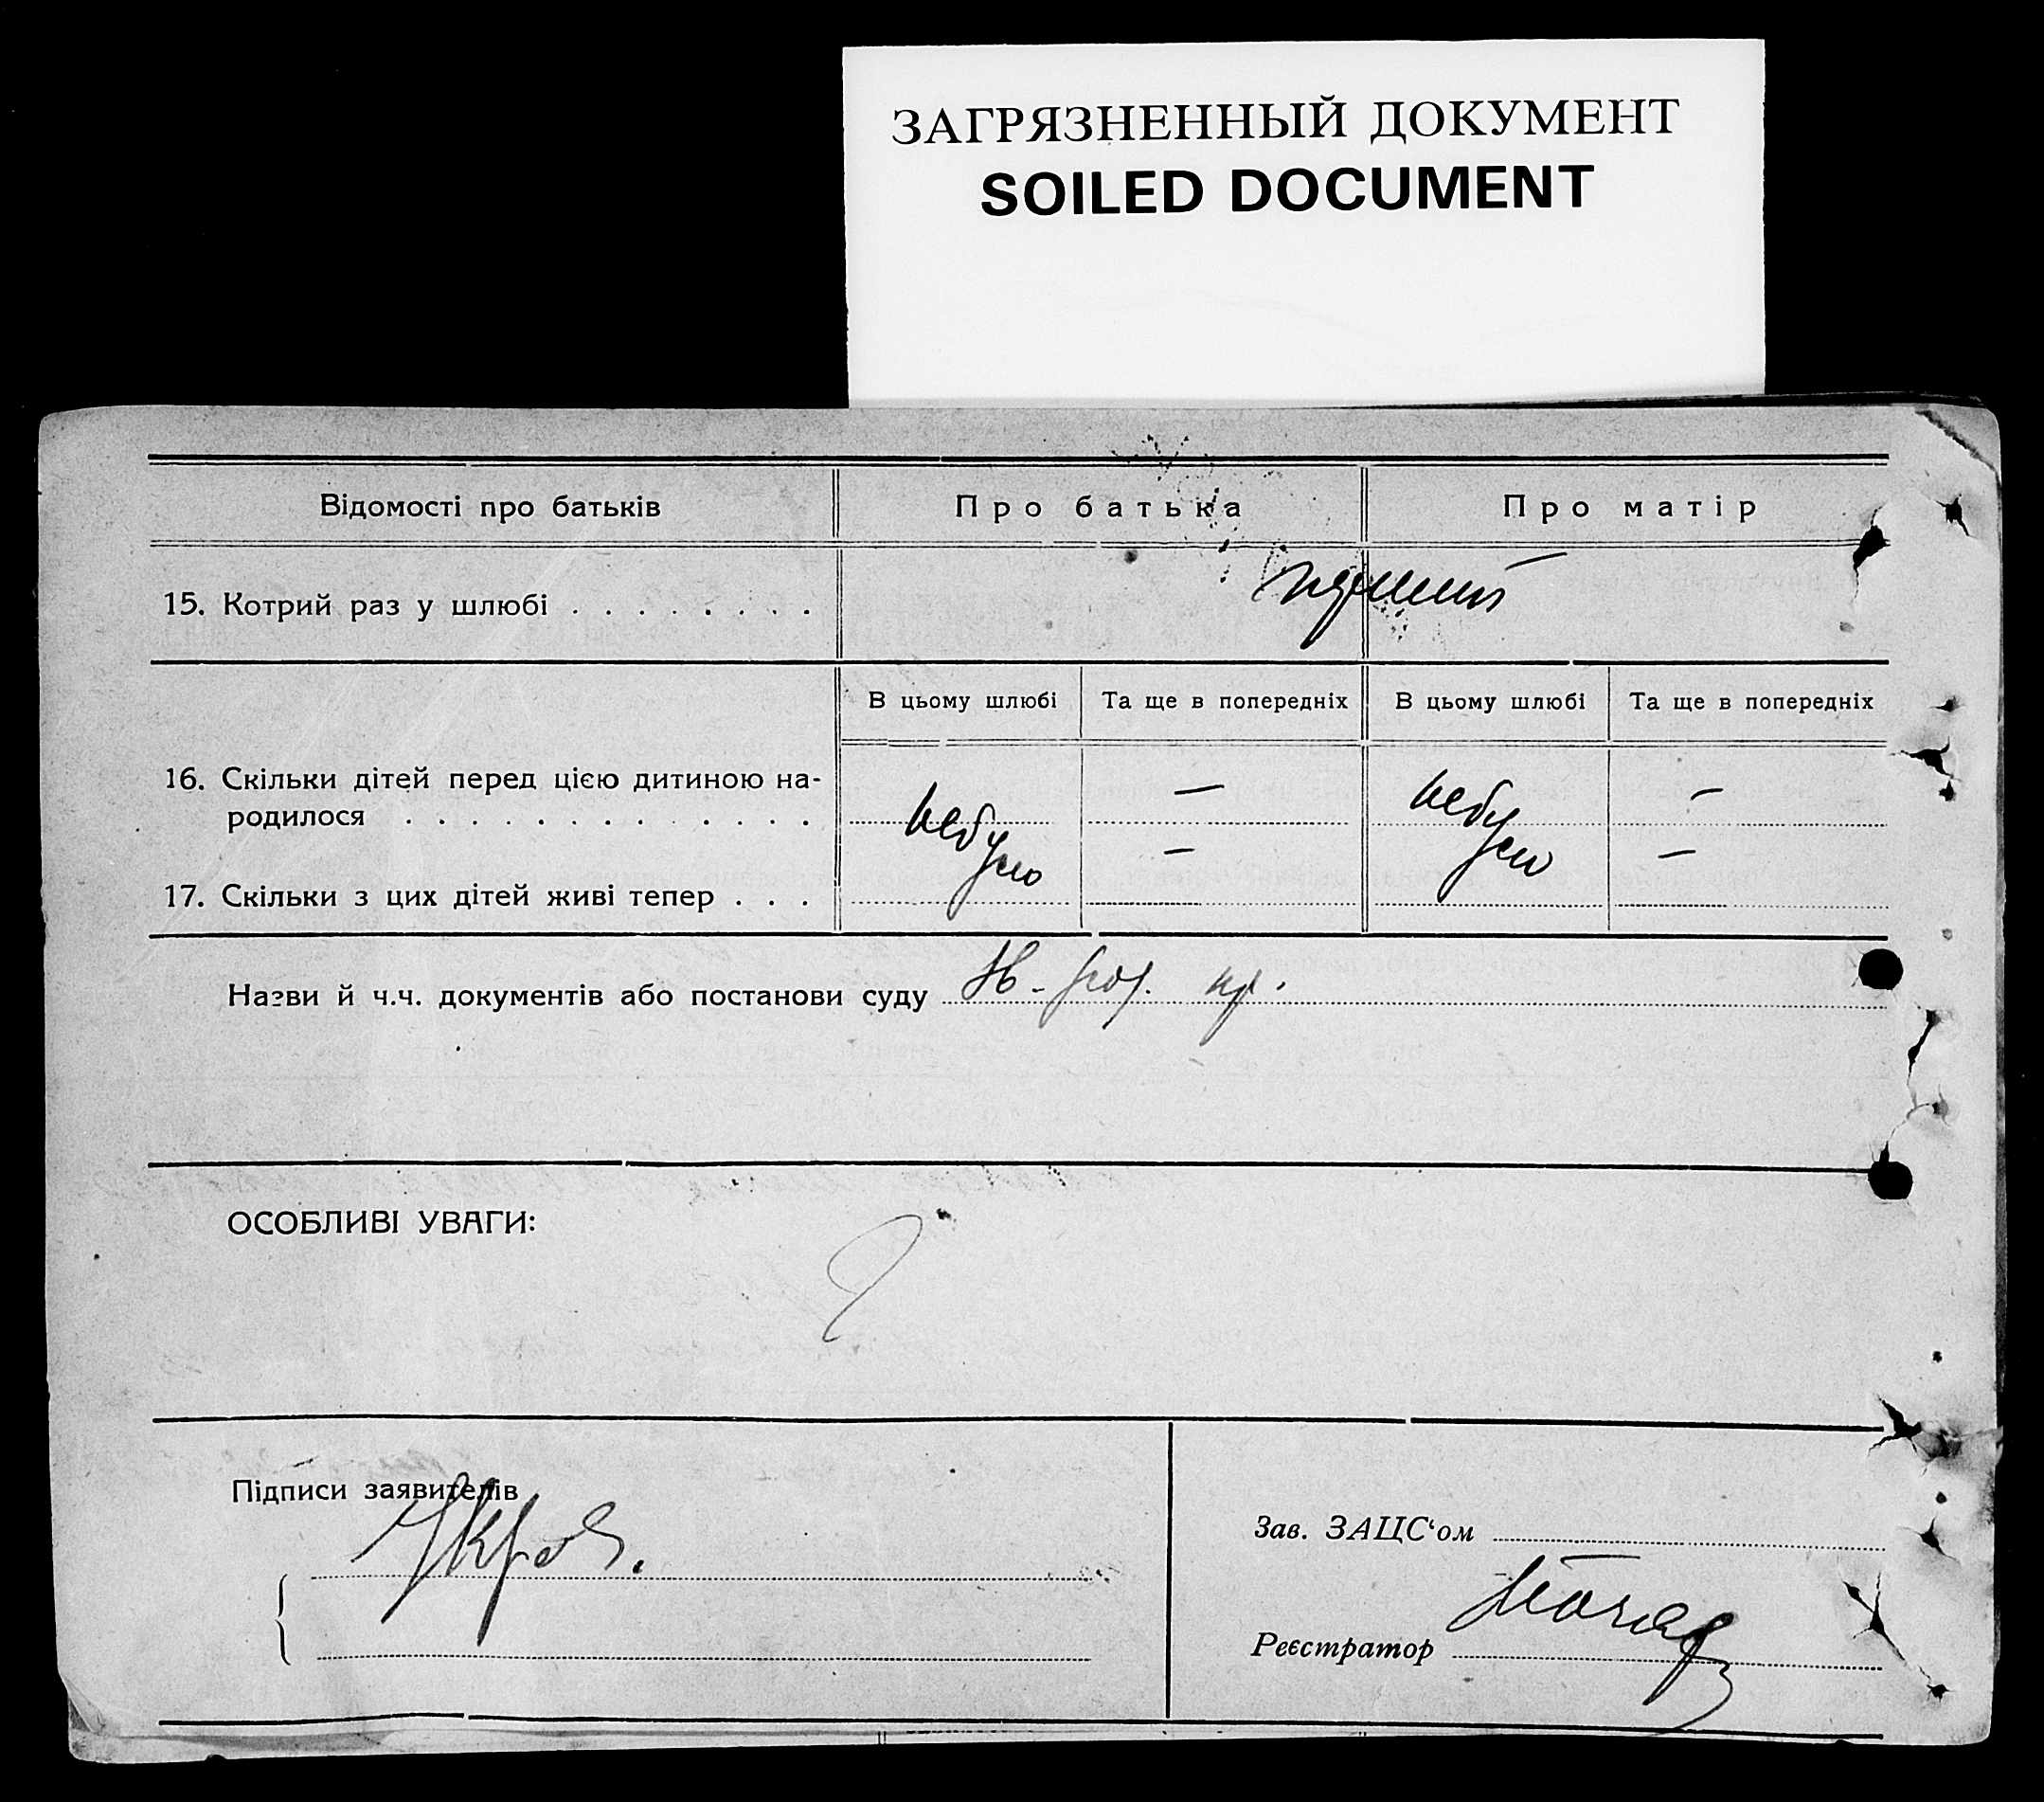 ЗАГРЯЗНЕННЫЙ ДОКУМЕНТ
SOILED DOCUMENT
Відомості про батьків
Про батька
Про матір
15. Котрий раз у шлюбі . . . . . . . .
В цьому шлюбі
Та ще в попередніх
В цьому шлюбі
Та ще в попередніх
16. Скільки дітей перед цією дитиною на-
родилося . . . . . . . . . . . . .
— —
небуло небуло
— —
17. Скільки з цих дітей живі тепер . . .
Назви й ч.ч. документів або постанови суду
ОСОБЛИВІ УВАГИ:
Підписи заявителів
Зав. ЗАЦС‘ом
Реєстратор